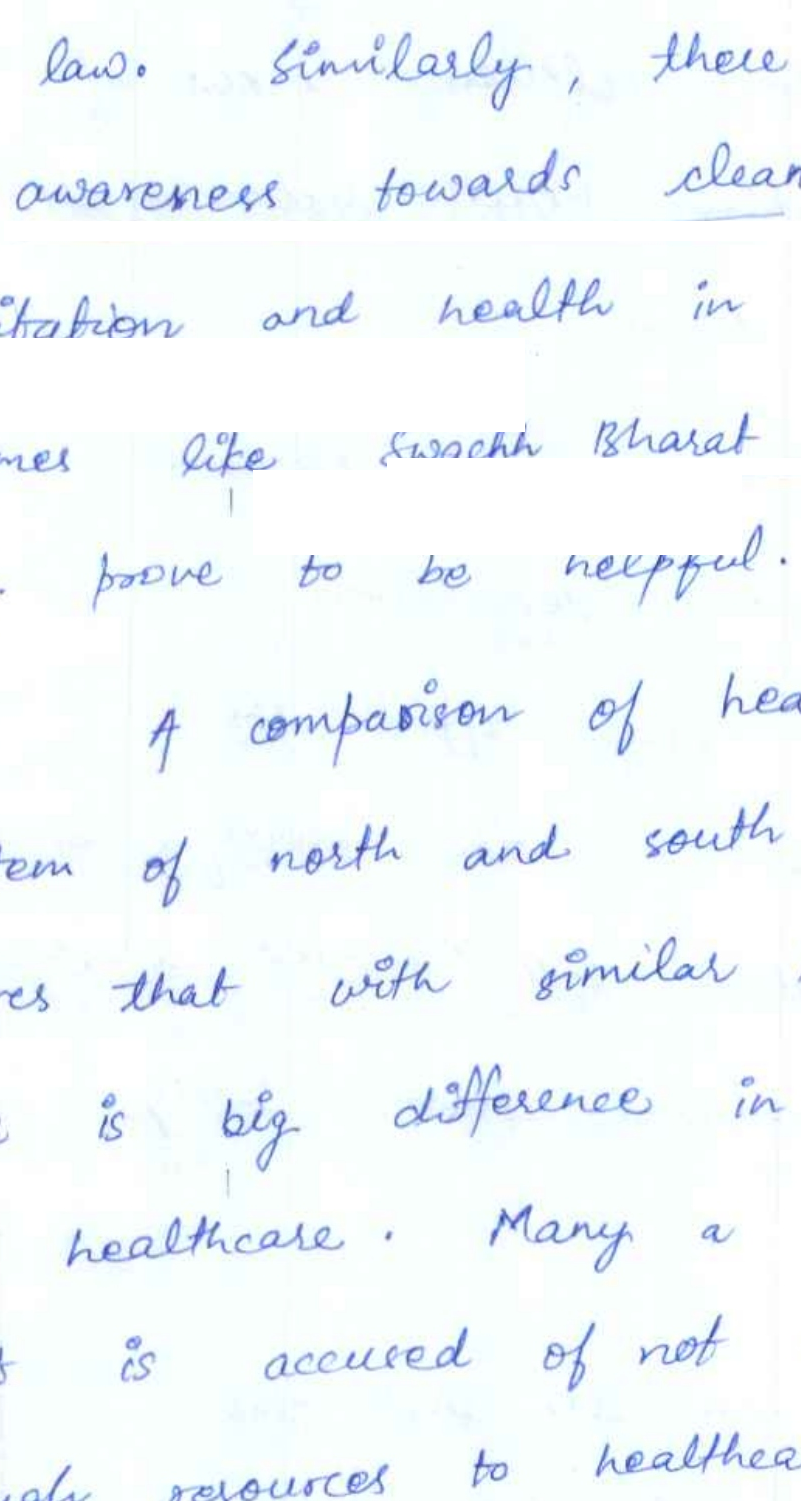 law. Similarly, there
awareness towards clean
itation and health in
mes like Swachh Bharat
prove to be helpful.
A comparison of hea
tem of north and south
res that with similar
is big difference in
healthcare. Many a
is accused of not
resources to healthca